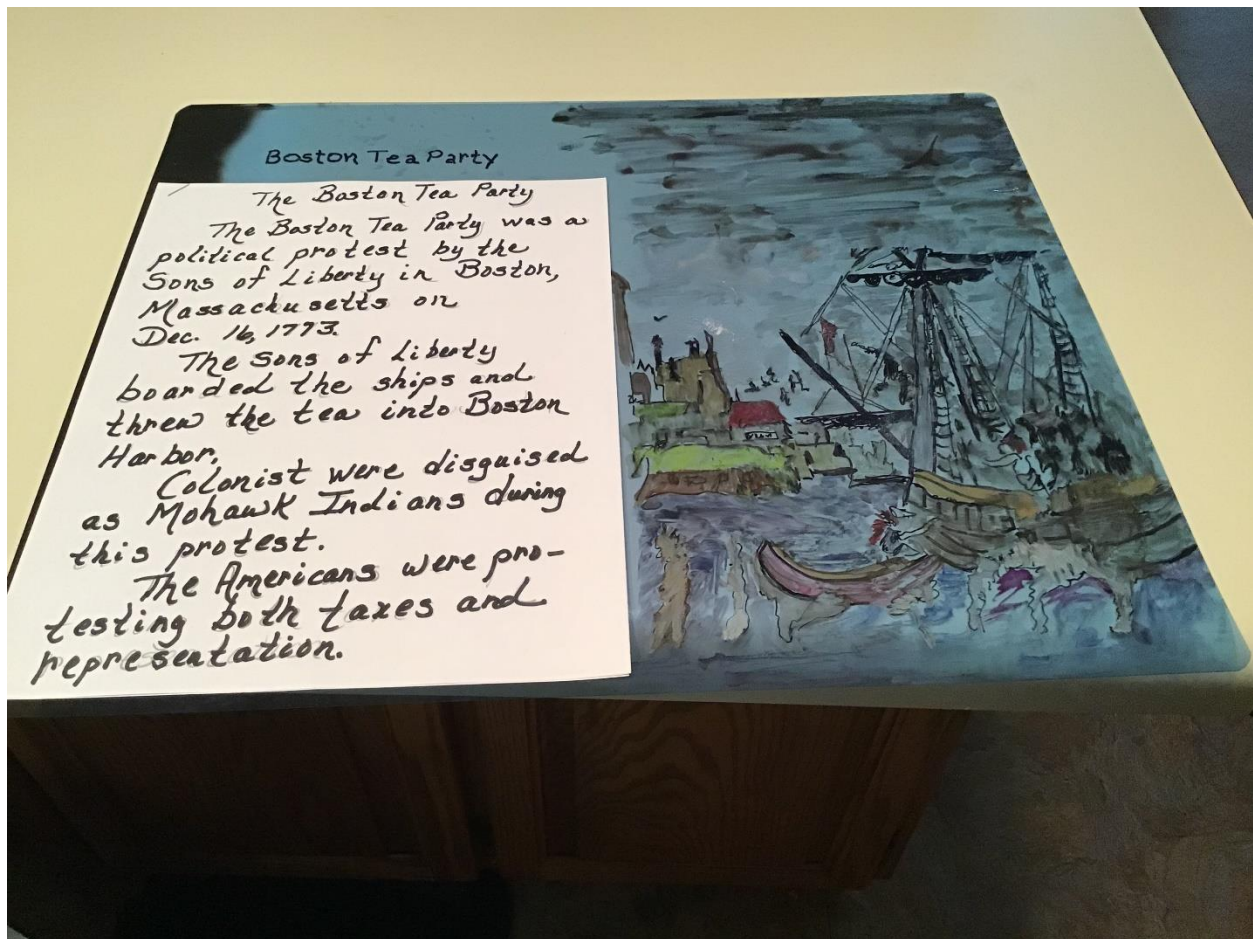 Boston Tea Party
The Boston Tea Party
The Boston Tea Party was a
political protest by the
Sons of Liberty in Boston,
Massachusetts on
Dec. 16, 1773.
The Sons of Liberty
boarded the ships and
threw the tea into Boston
Harbor.
Colonist were disguised
as Mohawk Indians during
this protest.
The Americans were pro-
testing both taxes and
representation.